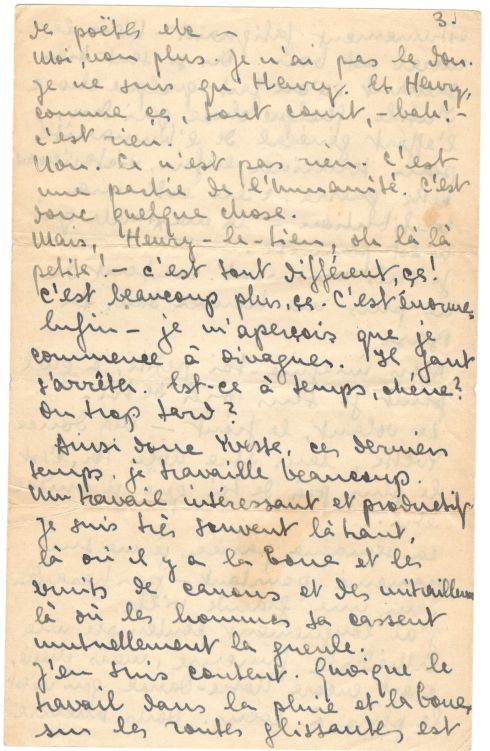 3.
des poëtes etc –
Moi non plus. Je n'ai pas le don.
Je ne suis qu'Henry. Et Henry,
comme ça, tout court, – bah! –
c'est rien.
Non. Ce n'est pas rien. C'est
une partie de l'humanité. C'est
donc quelque chose.
Mais, Henry-le-tien, oh là là
petite! – c'est tout différent, ça!
C'est beaucoup plus, ça. C'est énorme.
Enfin – je m'aperçois que je
commence à divaguer. Il faut
s'arrêter. Est-ce à temps, chérie?
Ou trop tard?
Ainsi donc Yvette, ces derniers
temps, je travaille beaucoup.
Un travail intéressant et productif
Je suis très souvent là haut,
là où il y a la boue et les
bruits de canons et des mitrailleuses
là où les hommes se cassent
mutuellement la gueule.
J'en suis content. Quoique le
travail dans la pluie et la boue,
sur les routes glissantes est